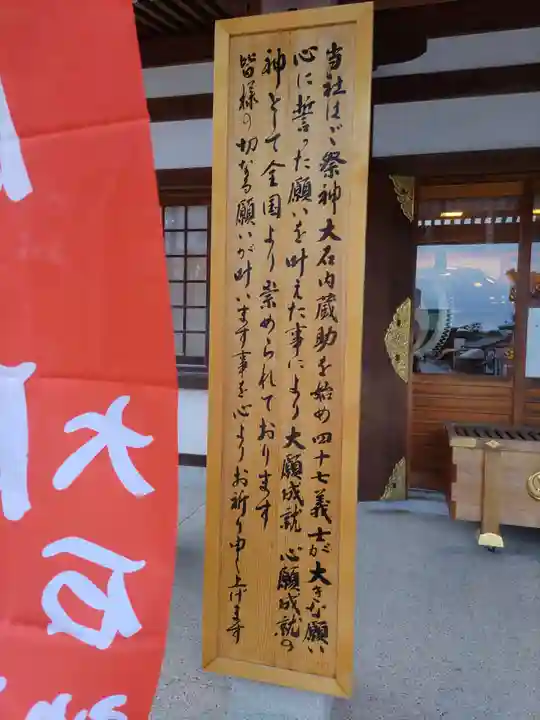 当社はご祭神大石内蔵助を始め四十七義士が大きな願い
心に誓った願いを叶えた事により大願成就 心願成就の
神として全国より崇められております
皆様の切なる願いが叶います事を心よりお祈り申し上げます
大石